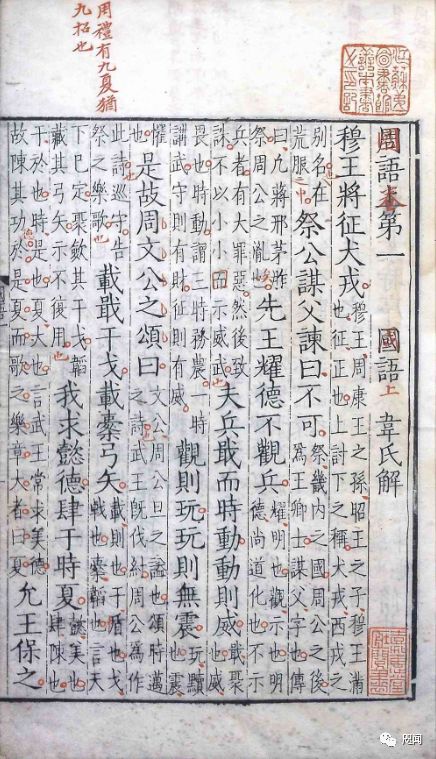 周禮有九夏猶
九招也
國語第一　國語上　韋氏解
穆王將征犬戎
穆王周康王之孫昭王之子穆王滿
也征正也上討下之稱犬戎西戎之
別名在
荒服之中
祭公謀父諫曰不可
祭畿內之國周公之後
爲王卿士謀父字也傳
曰凡蔣邢茅胙
祭周公之胤也
先王耀德不觀兵
耀明也觀示也明
德尚道化也不示
兵者有大罪惡然後致
誅不以小小而示威武也
夫兵戢而時動動則威
戢聚
也威
畏也時動謂三時務農一時
講武守則有財征則有威
觀則玩玩則無震
玩黷
也震
懼
也
是故周文公之頌曰
文公周公旦之謚也頌時邁
之詩武王旣伐紂周公爲作
此詩巡守告
祭之樂歌也
載戢干戈載櫜弓矢
載則也干盾也戈
戟也櫜韜也言天
下已定聚斂其干戈韜
載其弓矢示不復用
我求懿德肆于時夏
懿美也
肆陳也
于於也時是也夏大也言武王常求美德
故陳其功於是夏而歌之樂章大者曰夏
允王保之